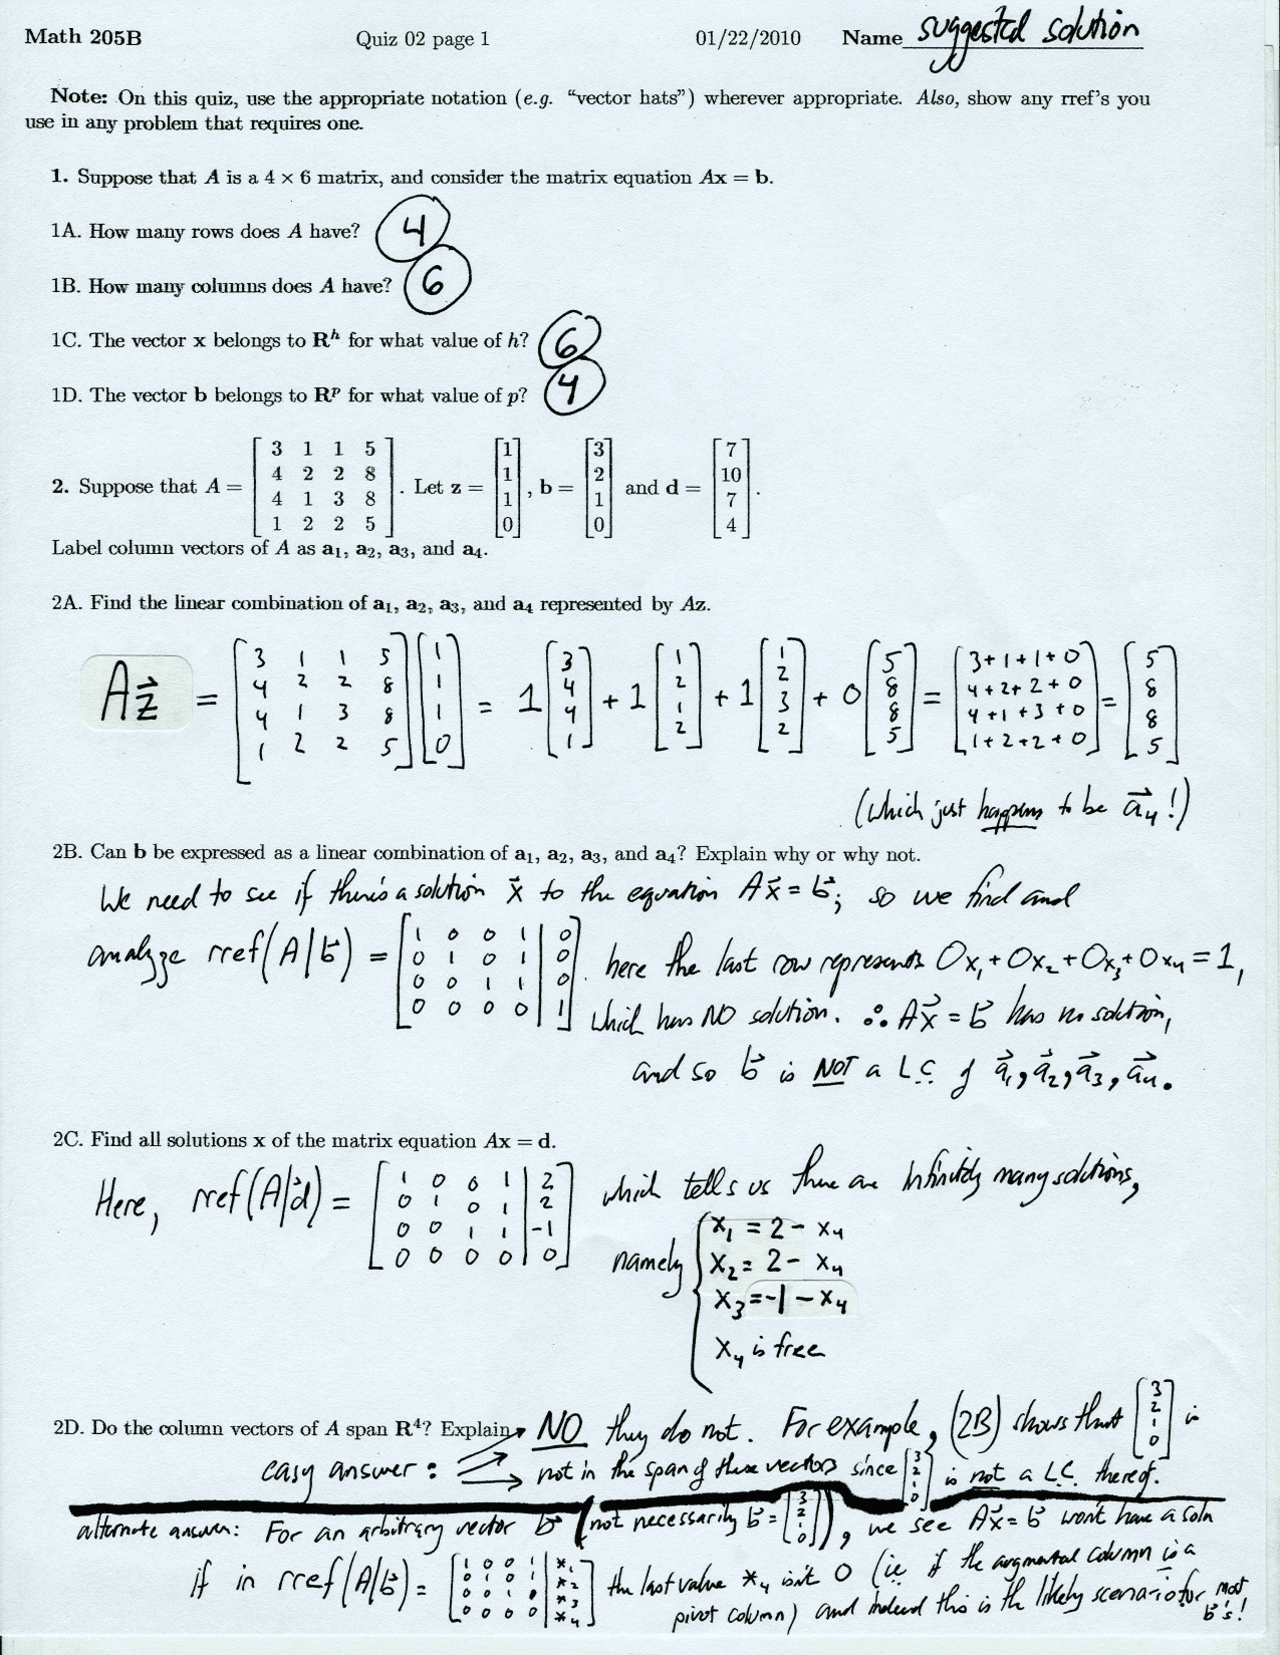 Math 205B Quiz 02 page 1 01/22/2010 Name suggested solution
Note: On this quiz, use the appropriate notation (e.g. "vector hats") wherever appropriate. Also, show any rref's you
use in any problem that requires one.
1. Suppose that A is a 4 × 6 matrix, and consider the matrix equation Ax = b.
1A. How many rows does A have? 4
1B. How many columns does A have? 6
1C. The vector x belongs to R^h for what value of h? 6
1D. The vector b belongs to R^p for what value of p? 4
2. Suppose that A = [3 1 1 5; 4 2 2 8; 4 1 3 8; 1 2 2 5]. Let z = [1; 1; 1; 0], b = [3; 2; 1; 0] and d = [7; 10; 7; 4].
Label column vectors of A as a₁, a₂, a₃, and a₄.
2A. Find the linear combination of a₁, a₂, a₃, and a₄ represented by Az.
Az⃗ = [3 1 1 5; 4 2 2 8; 4 1 3 8; 1 2 2 5][1; 1; 1; 0] = 1[3; 4; 4; 1] + 1[1; 2; 1; 2] + 1[1; 2; 3; 2] + 0[5; 8; 8; 5] = [3+1+1+0; 4+2+2+0; 4+1+3+0; 1+2+2+0] = [5; 8; 8; 5]
(which just happens to be a⃗₄!)
2B. Can b be expressed as a linear combination of a₁, a₂, a₃, and a₄? Explain why or why not.
We need to see if there's a solution x⃗ to the equation Ax⃗ = b⃗; so we find and
analyze rref(A|b⃗) = [1 0 0 1 | 0; 0 1 0 1 | 0; 0 0 1 1 | 0; 0 0 0 0 | 1]. here the last row represents 0x₁+0x₂+0x₃+0x₄=1,
which has NO solution. ∴ Ax⃗ = b⃗ has no solution,
and so b⃗ is NOT a L.C. of a⃗₁, a⃗₂, a⃗₃, a⃗₄.
2C. Find all solutions x of the matrix equation Ax = d.
Here, rref(A|d⃗) = [1 0 0 1 | 2; 0 1 0 1 | 2; 0 0 1 1 | -1; 0 0 0 0 | 0] which tells us there are infinitely many solutions,
namely { x₁ = 2 - x₄
x₂ = 2 - x₄
x₃ = -1 - x₄
x₄ is free
2D. Do the column vectors of A span R⁴? Explain. NO they do not. For example, (2B) shows that [3; 2; 1; 0] is
easy answer: not in the span of these vectors since [3; 2; 1; 0] is not a L.C. thereof.
alternate answer: For an arbitrary vector b⃗ (not necessarily b⃗ = [3; 2; 1; 0]), we see Ax⃗ = b⃗ won't have a soln
if in rref(A|b⃗) = [1 0 0 1 | *₁; 0 1 0 1 | *₂; 0 0 1 0 | *₃; 0 0 0 0 | *₄] the last value *₄ isn't 0 (ie if the augmented column is a
pivot column) and indeed this is the likely scenario for most
b⃗'s!